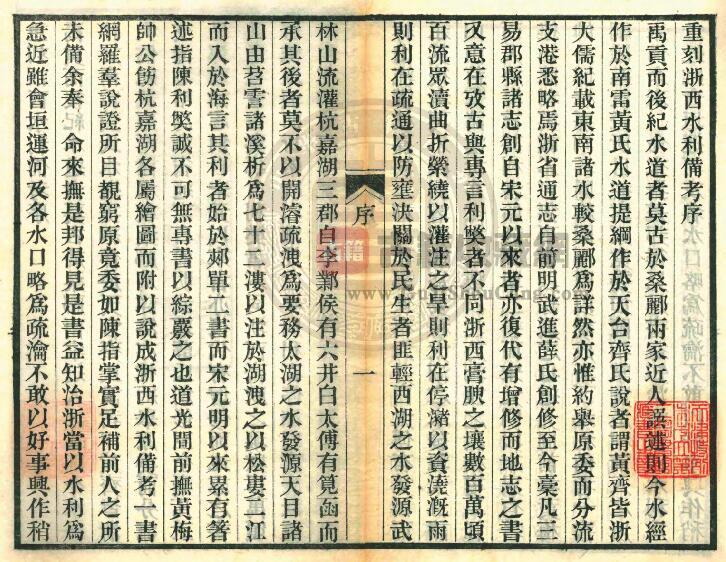 重刻浙西水利備考序
禹貢而後紀水道者莫古於桑酈兩家近人譔述則今水經
作於南雷黃氏水道提綱作於天台齊氏說者謂黃齊皆浙
大儒紀載東南諸水較桑酈爲詳然亦惟約舉原委而分流
支港悉略焉浙省通志自前明武進薛氏創修至今毫凡三
易郡縣諸志創自宋元以來者亦復代有增修而地志之書
又意在攷古與專言利獘者不同浙西膏腴之壤數百萬頃
百流眾瀆曲折縈繞以灌注之旱則利在停瀦以資澆漑雨
則利在疏通以防壅決關於民生者匪輕西湖之水發源武
序
一
林山流灌杭嘉湖三郡自李鄴侯有六井白太傅有筧函而
承其後者莫不以開濬疏洩爲要務太湖之水發源天目諸
山由苕霅諸溪析爲七十二漊以注於湖洩之以松婁二江
而入於海言其利者始於郟單二書而宋元明以來累有著
述指陳利獘誠不可無專書以綜覈之也道光間前撫黃梅
帥公飭杭嘉湖各屬繪圖而附以說成浙西水利備考一書
網羅羣說證所目覩窮原竟委如陳指掌實足補前人之所
未備余奉
命來撫是邦得見是書益知治浙當以水利爲
急近雖會垣運河及各水口略爲疏瀹不敢以好事興作稍